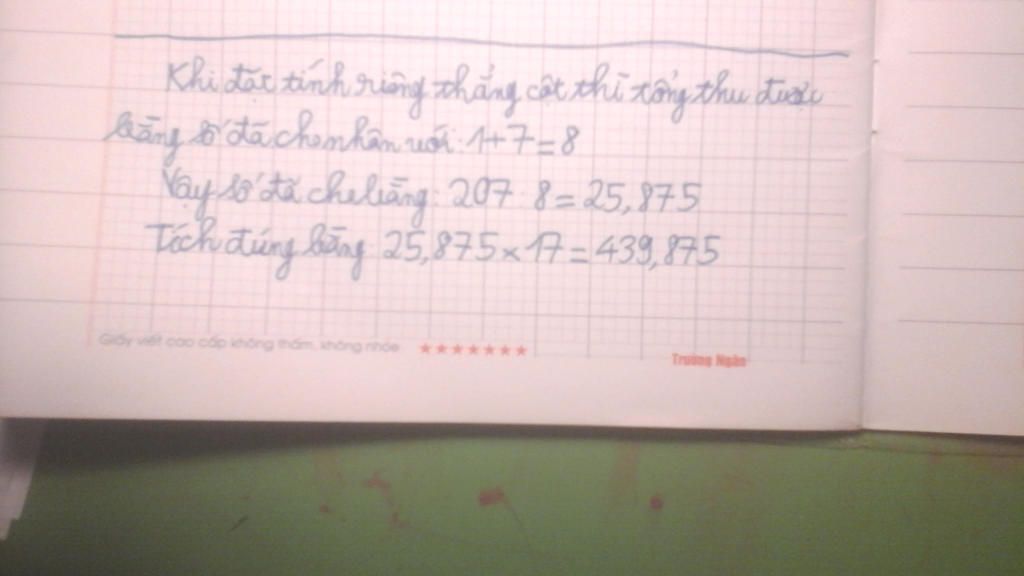 Khi đặt tính riêng thẳng cột thì tổng thu được
bằng số đã cho nhân với: 1+7=8
Vậy số đã cho bằng: 207 8=25,875
Tích đúng bằng: 25,875×17=439,875
Giấy viết cao cấp không thấm, không nhòe ★★★★★★★ Trường Ngân